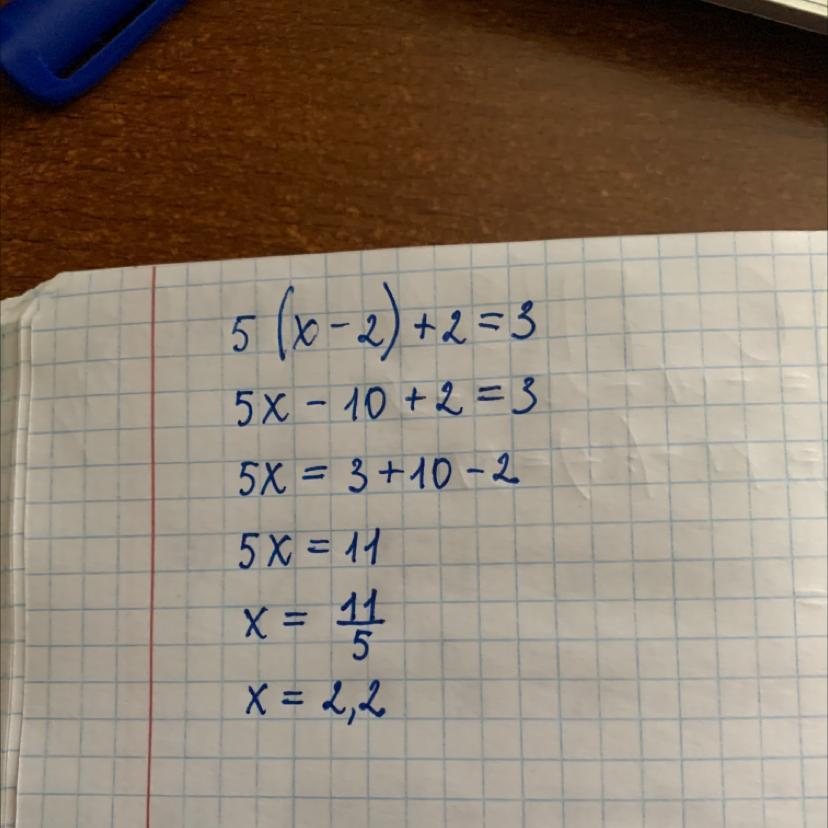 5(x-2)+2=3
5x-10+2=3
5x=3+10-2
5x=11
x=11/5
x=2,2